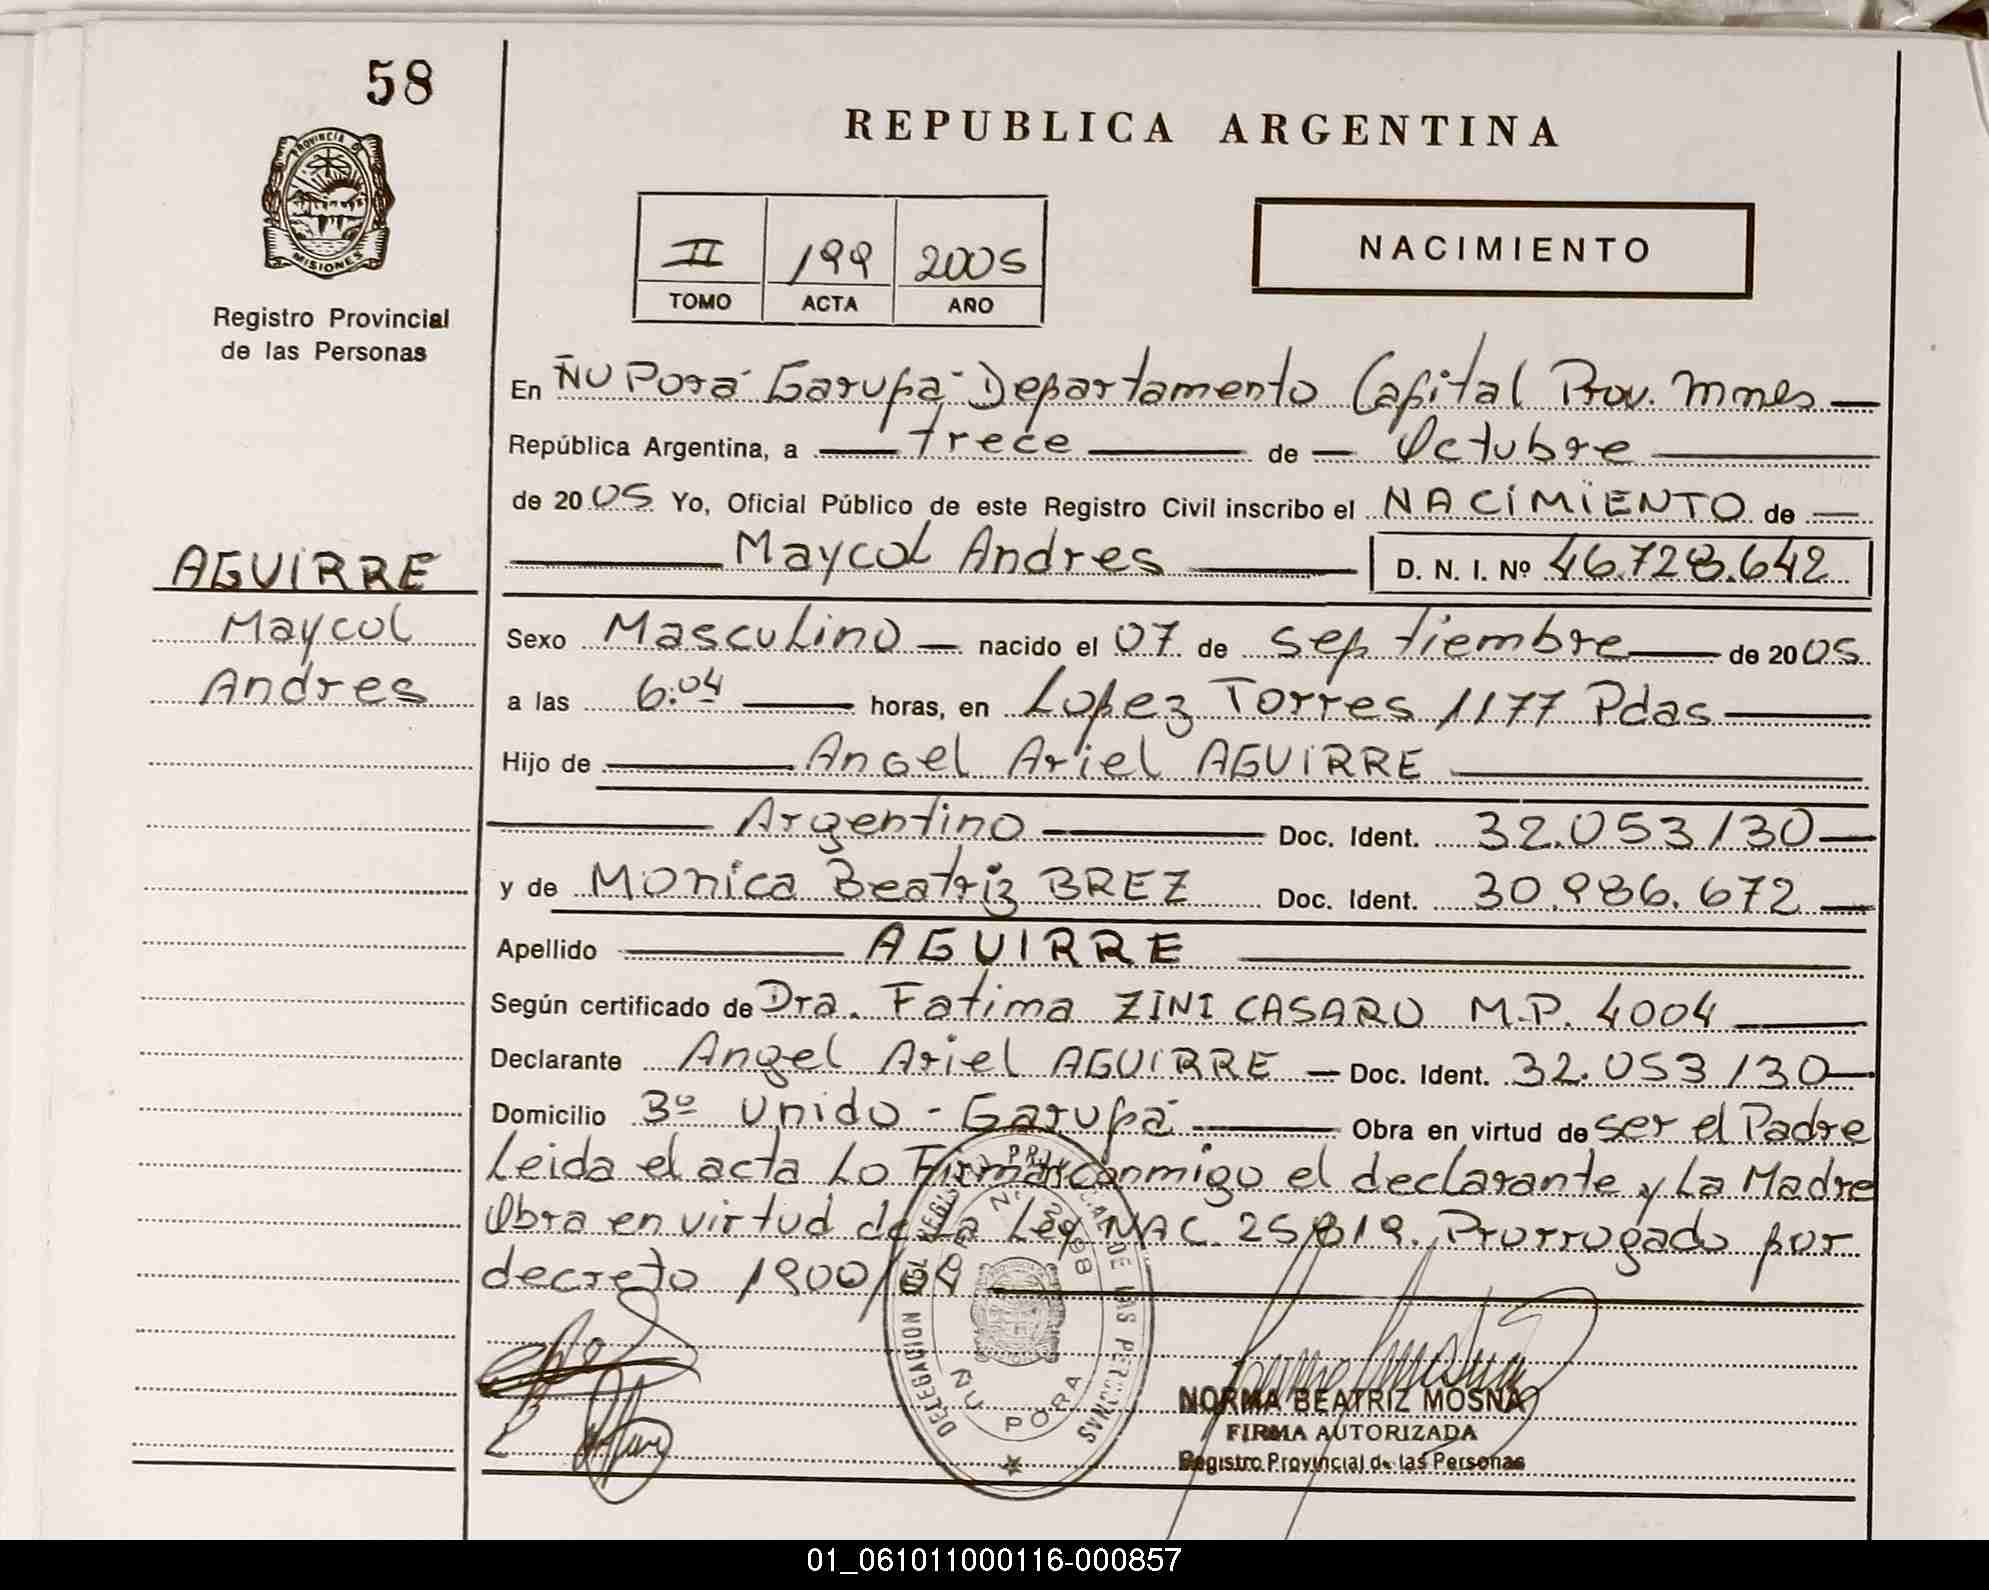 58
REPUBLICA ARGENTINA
PROVINCIA D
MISIONES
Registro Provincial
de las Personas
II 199 2005
TOMO ACTA AÑO
NACIMIENTO
En ÑU Porá Garupá Departamento Capital Prov. Mnes
República Argentina, a trece de Octubre
de 2005 Yo, Oficial Público de este Registro Civil inscribo el NACIMIENTO de
Maycol Andres D. N. I. Nº 46.728.642
AGUIRRE
Maycol
Andres
Sexo Masculino nacido el 07 de septiembre de 2005
a las 6:04 horas, en Lopez Torres 1177 Pdas
Hijo de Angel Ariel AGUIRRE
Argentino Doc. Ident. 32.053130
y de Monica Beatriz BREZ Doc. Ident. 30.986.672
Apellido AGUIRRE
Según certificado de Dra. Fatima ZINI CASARO M.P. 4004
Declarante Angel Ariel AGUIRRE Doc. Ident. 32.053130
Domicilio 3º Unido - Garupá Obra en virtud de ser el Padre
Leida el acta Lo Firman conmigo el declarante y La Madre
Obra en virtud de La Ley NAC. 25819. Prorrogado por
decreto 1900/04
DELEGACION DEL REGISTRO PROVINCIAL DE LAS PERSONAS
ÑU PORA
NORMA BEATRIZ MOSNA
FIRMA AUTORIZADA
Registro Provincial de las Personas
01_061011000116-000857